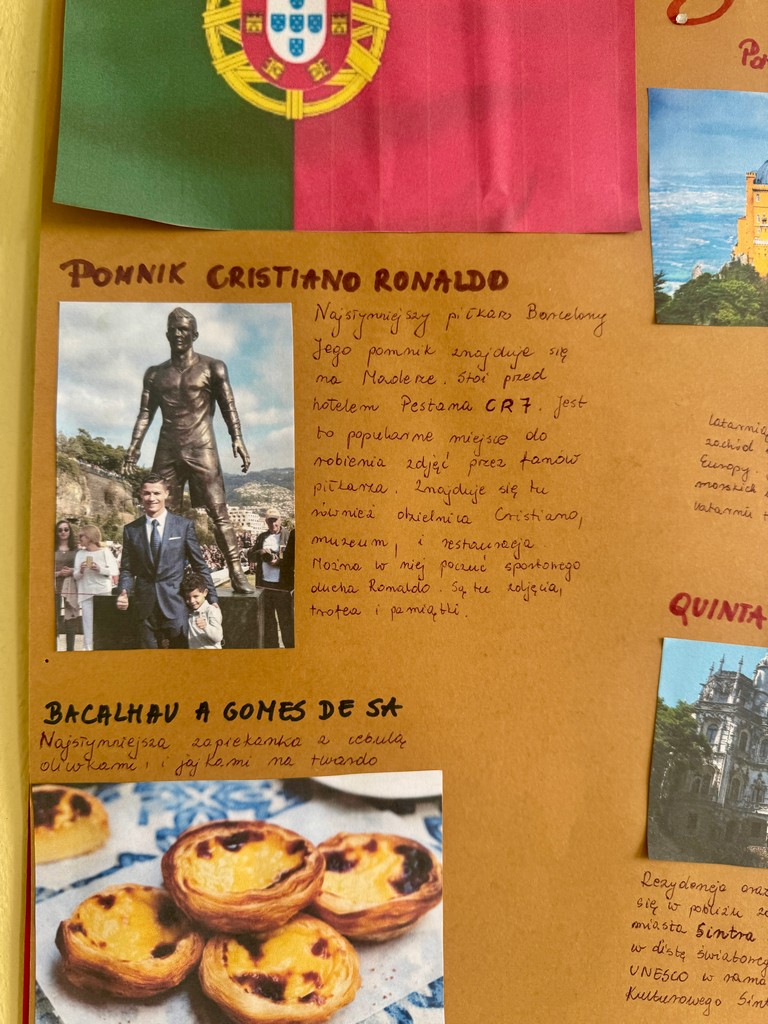 POMNIK CRISTIANO RONALDO
Najsłynniejszy piłkarz Barcelony
Jego pomnik znajduje się
na Maderze. Stoi przed
hotelem Pestana CR7. Jest
to popularne miejsce do
robienia zdjęć przez fanów
piłkarza. Znajduje się tu
również dzielnica Cristiano,
muzeum, i restauracja.
Można w niej poczuć sportowego
ducha Ronaldo. Są tu zdjęcia,
trofea i pamiątki.
BACALHAU A GOMES DE SA
Najsłynniejsza zapiekanka z cebulą
oliwkami, i jajkami na twardo
Latarnią
zachód
Europy.
morskich
QUINTA
Rezydencja oraz
się w pobliżu
miasta Sintra
w światoweg
UNESCO w rama
Kulturowego Sint